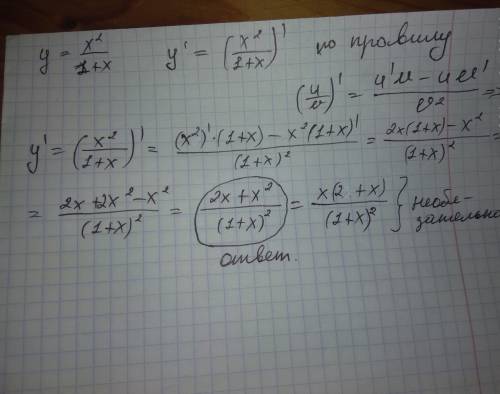 y = x²/(1+x)   y' = (x²/(1+x))'   по правилу
(u/v)' = (u'u − uu')/v² =
y' = (x²/(1+x))' = ((x²)'·(1+x) − x²(1+x)')/(1+x)² = (2x(1+x) − x²)/(1+x)² =
= (2x+2x²−x²)/(1+x)² = (2x+x²)/(1+x)² = x(2+x)/(1+x)² } необя-
зательно
ответ.